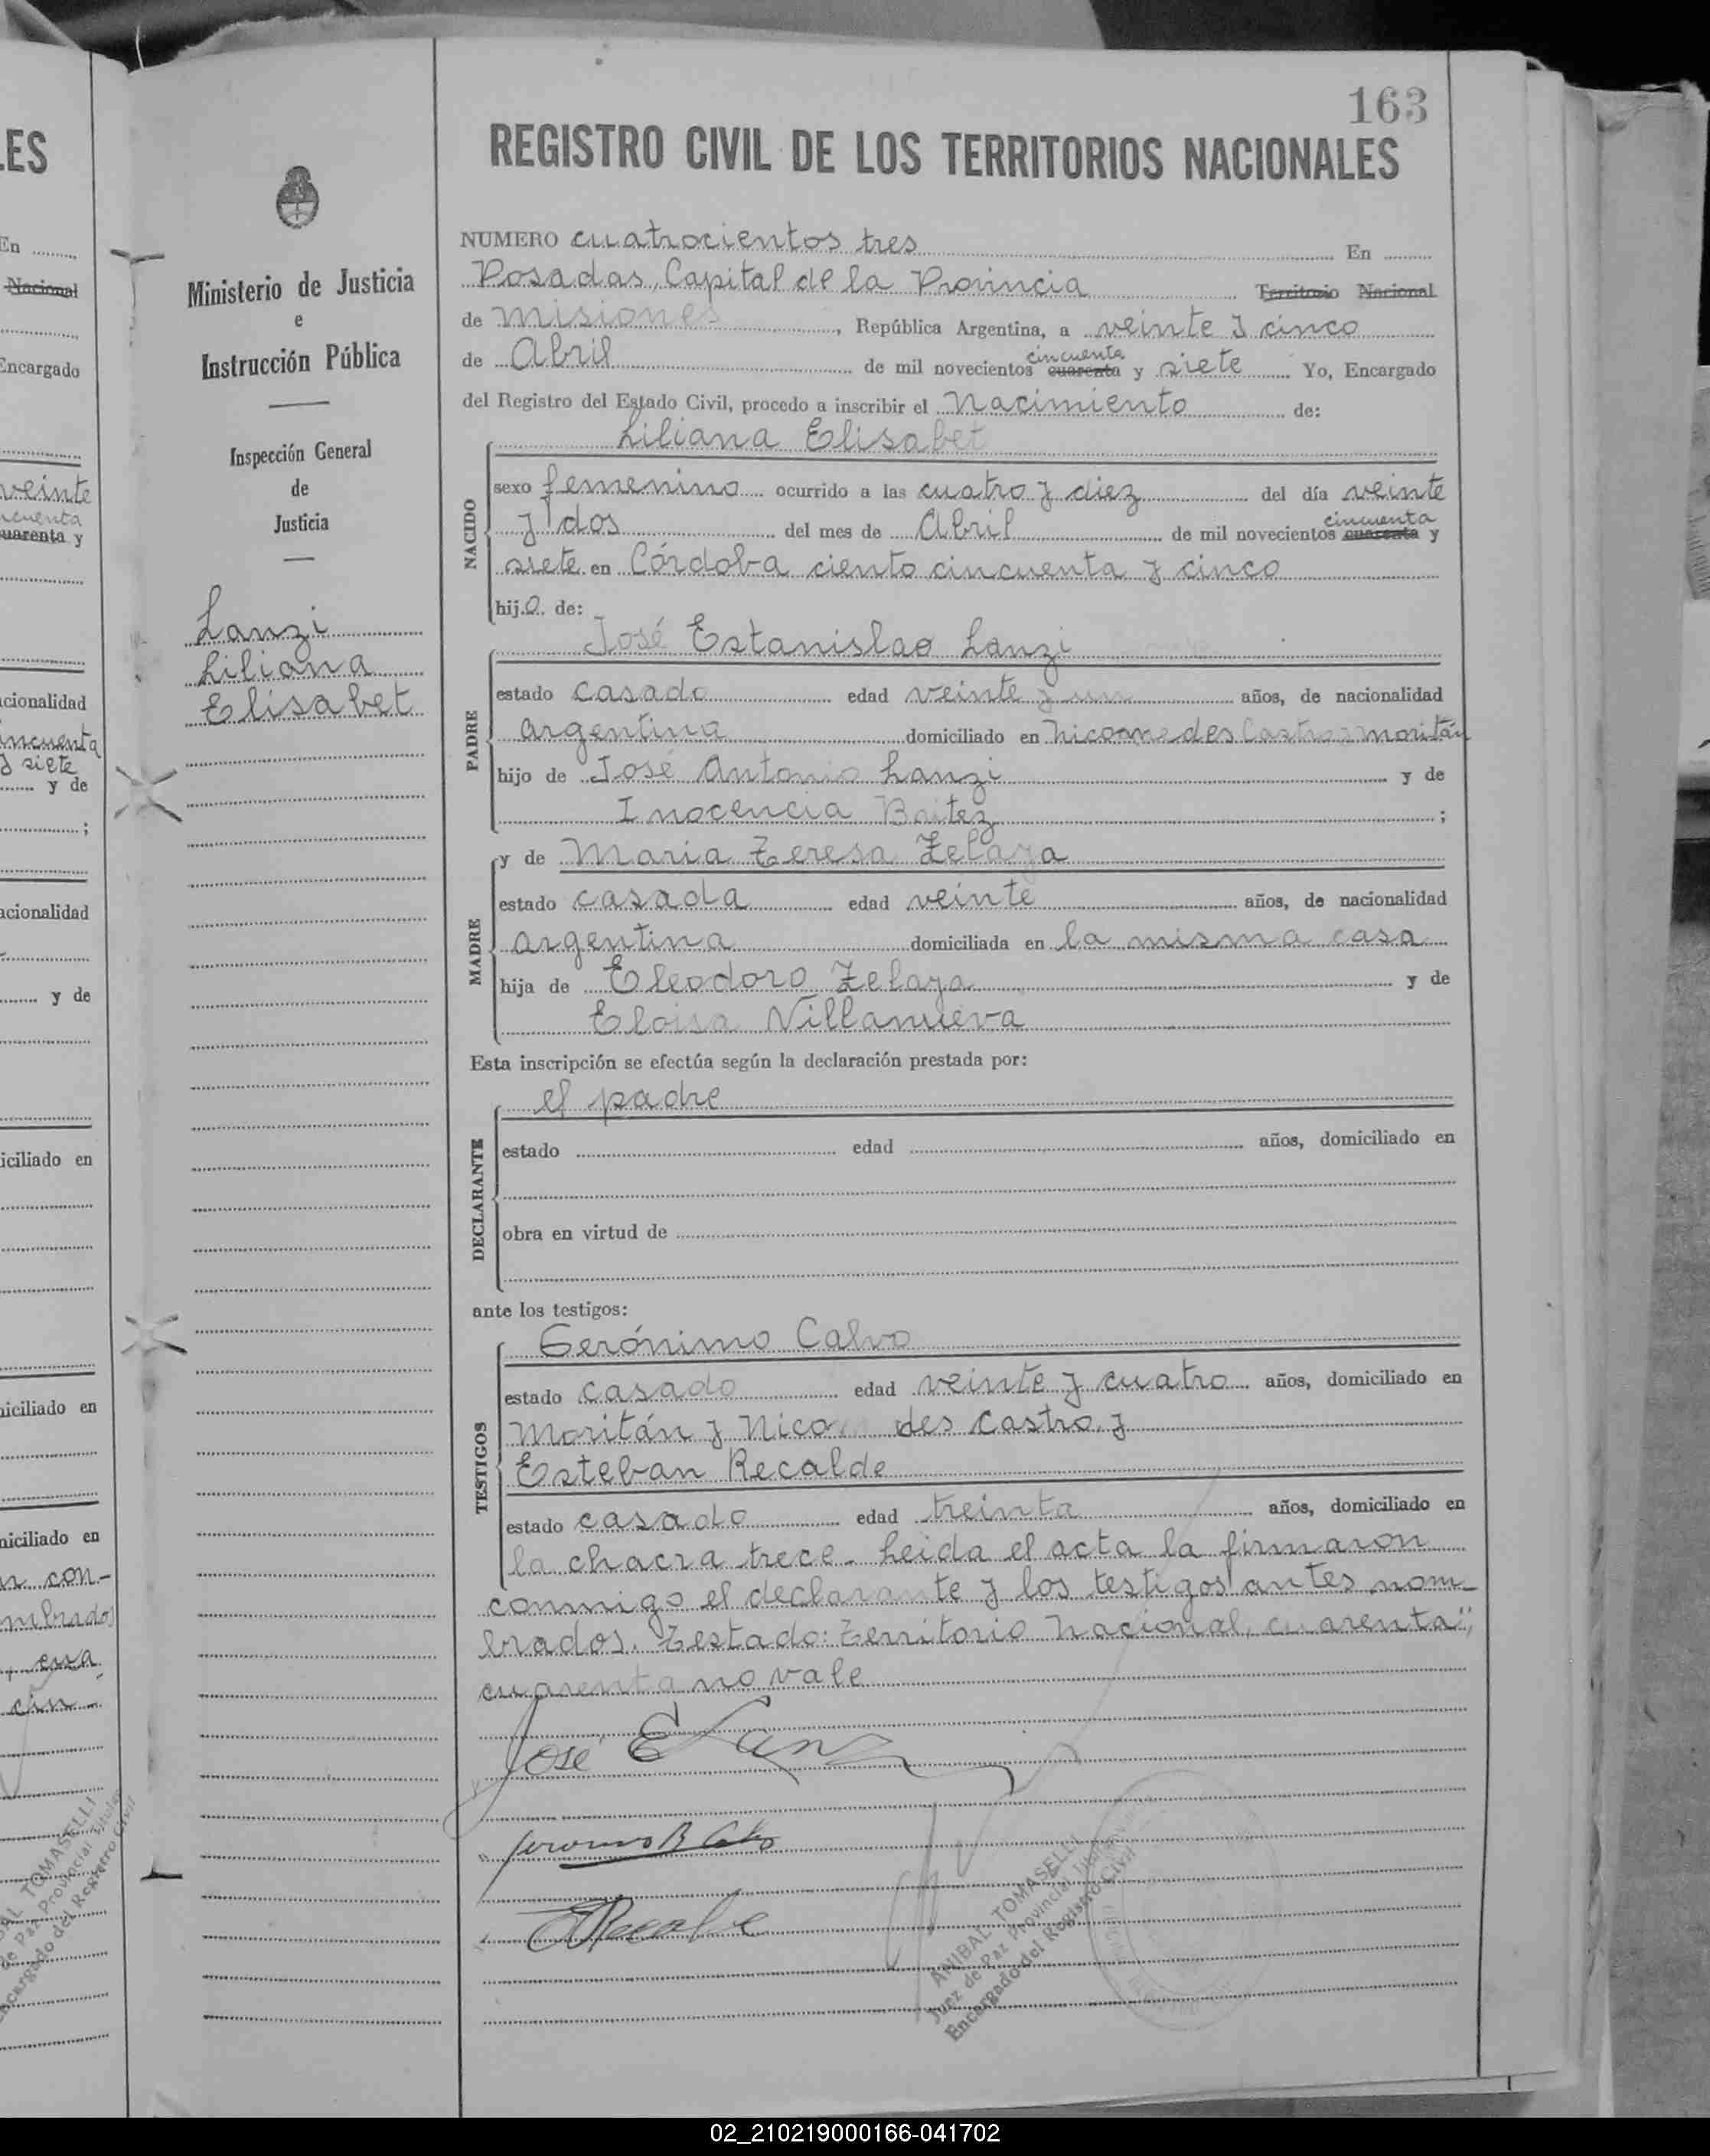 163
REGISTRO CIVIL DE LOS TERRITORIOS NACIONALES
Ministerio de Justicia
e
Instrucción Pública
Inspección General
de
Justicia
Lanzi
Liliana
Elisabet
NUMERO cuatrocientos tres En
Posadas, Capital de la Provincia Territorio Nacional
de Misiones, República Argentina, a veinte y cinco
de Abril de mil novecientos cuarenta cincuenta y siete Yo, Encargado
del Registro del Estado Civil, procedo a inscribir el Nacimiento de:
Liliana Elisabet
NACIDO
sexo femenino ocurrido a las cuatro y diez del día veinte
y dos del mes de Abril de mil novecientos cuarenta cincuenta y
siete en Córdoba ciento cincuenta y cinco
hija de:
José Estanislao Lanzi
PADRE
estado casado edad veinte y un años, de nacionalidad
argentina domiciliado en Nicomedes Castro y Moritán
hijo de José Antonio Lanzi y de
Inocencia Baitez;
y de Maria Teresa Zelaya
MADRE
estado casada edad veinte años, de nacionalidad
argentina domiciliada en la misma casa
hija de Eleodoro Zelaya y de
Eloisa Villanueva
Esta inscripción se efectúa según la declaración prestada por:
el padre
DECLARANTE
estado edad años, domiciliado en
obra en virtud de
ante los testigos:
Gerónimo Calvo
TESTIGOS
estado casado edad veinte y cuatro años, domiciliado en
Moritán y Nico des Castro, y
Esteban Recalde
estado casado edad treinta años, domiciliado en
la chacra trece. Leida el acta la firmaron
conmigo el declarante y los testigos antes nom-
brados. Testado: Territorio Nacional, cuarenta",
cuarenta no vale
José E Lanzi
ANIBAL TOMASELLI
Juez de Paz Provincial Titular
Encargado del Registro Civil
02_210219000166-041702